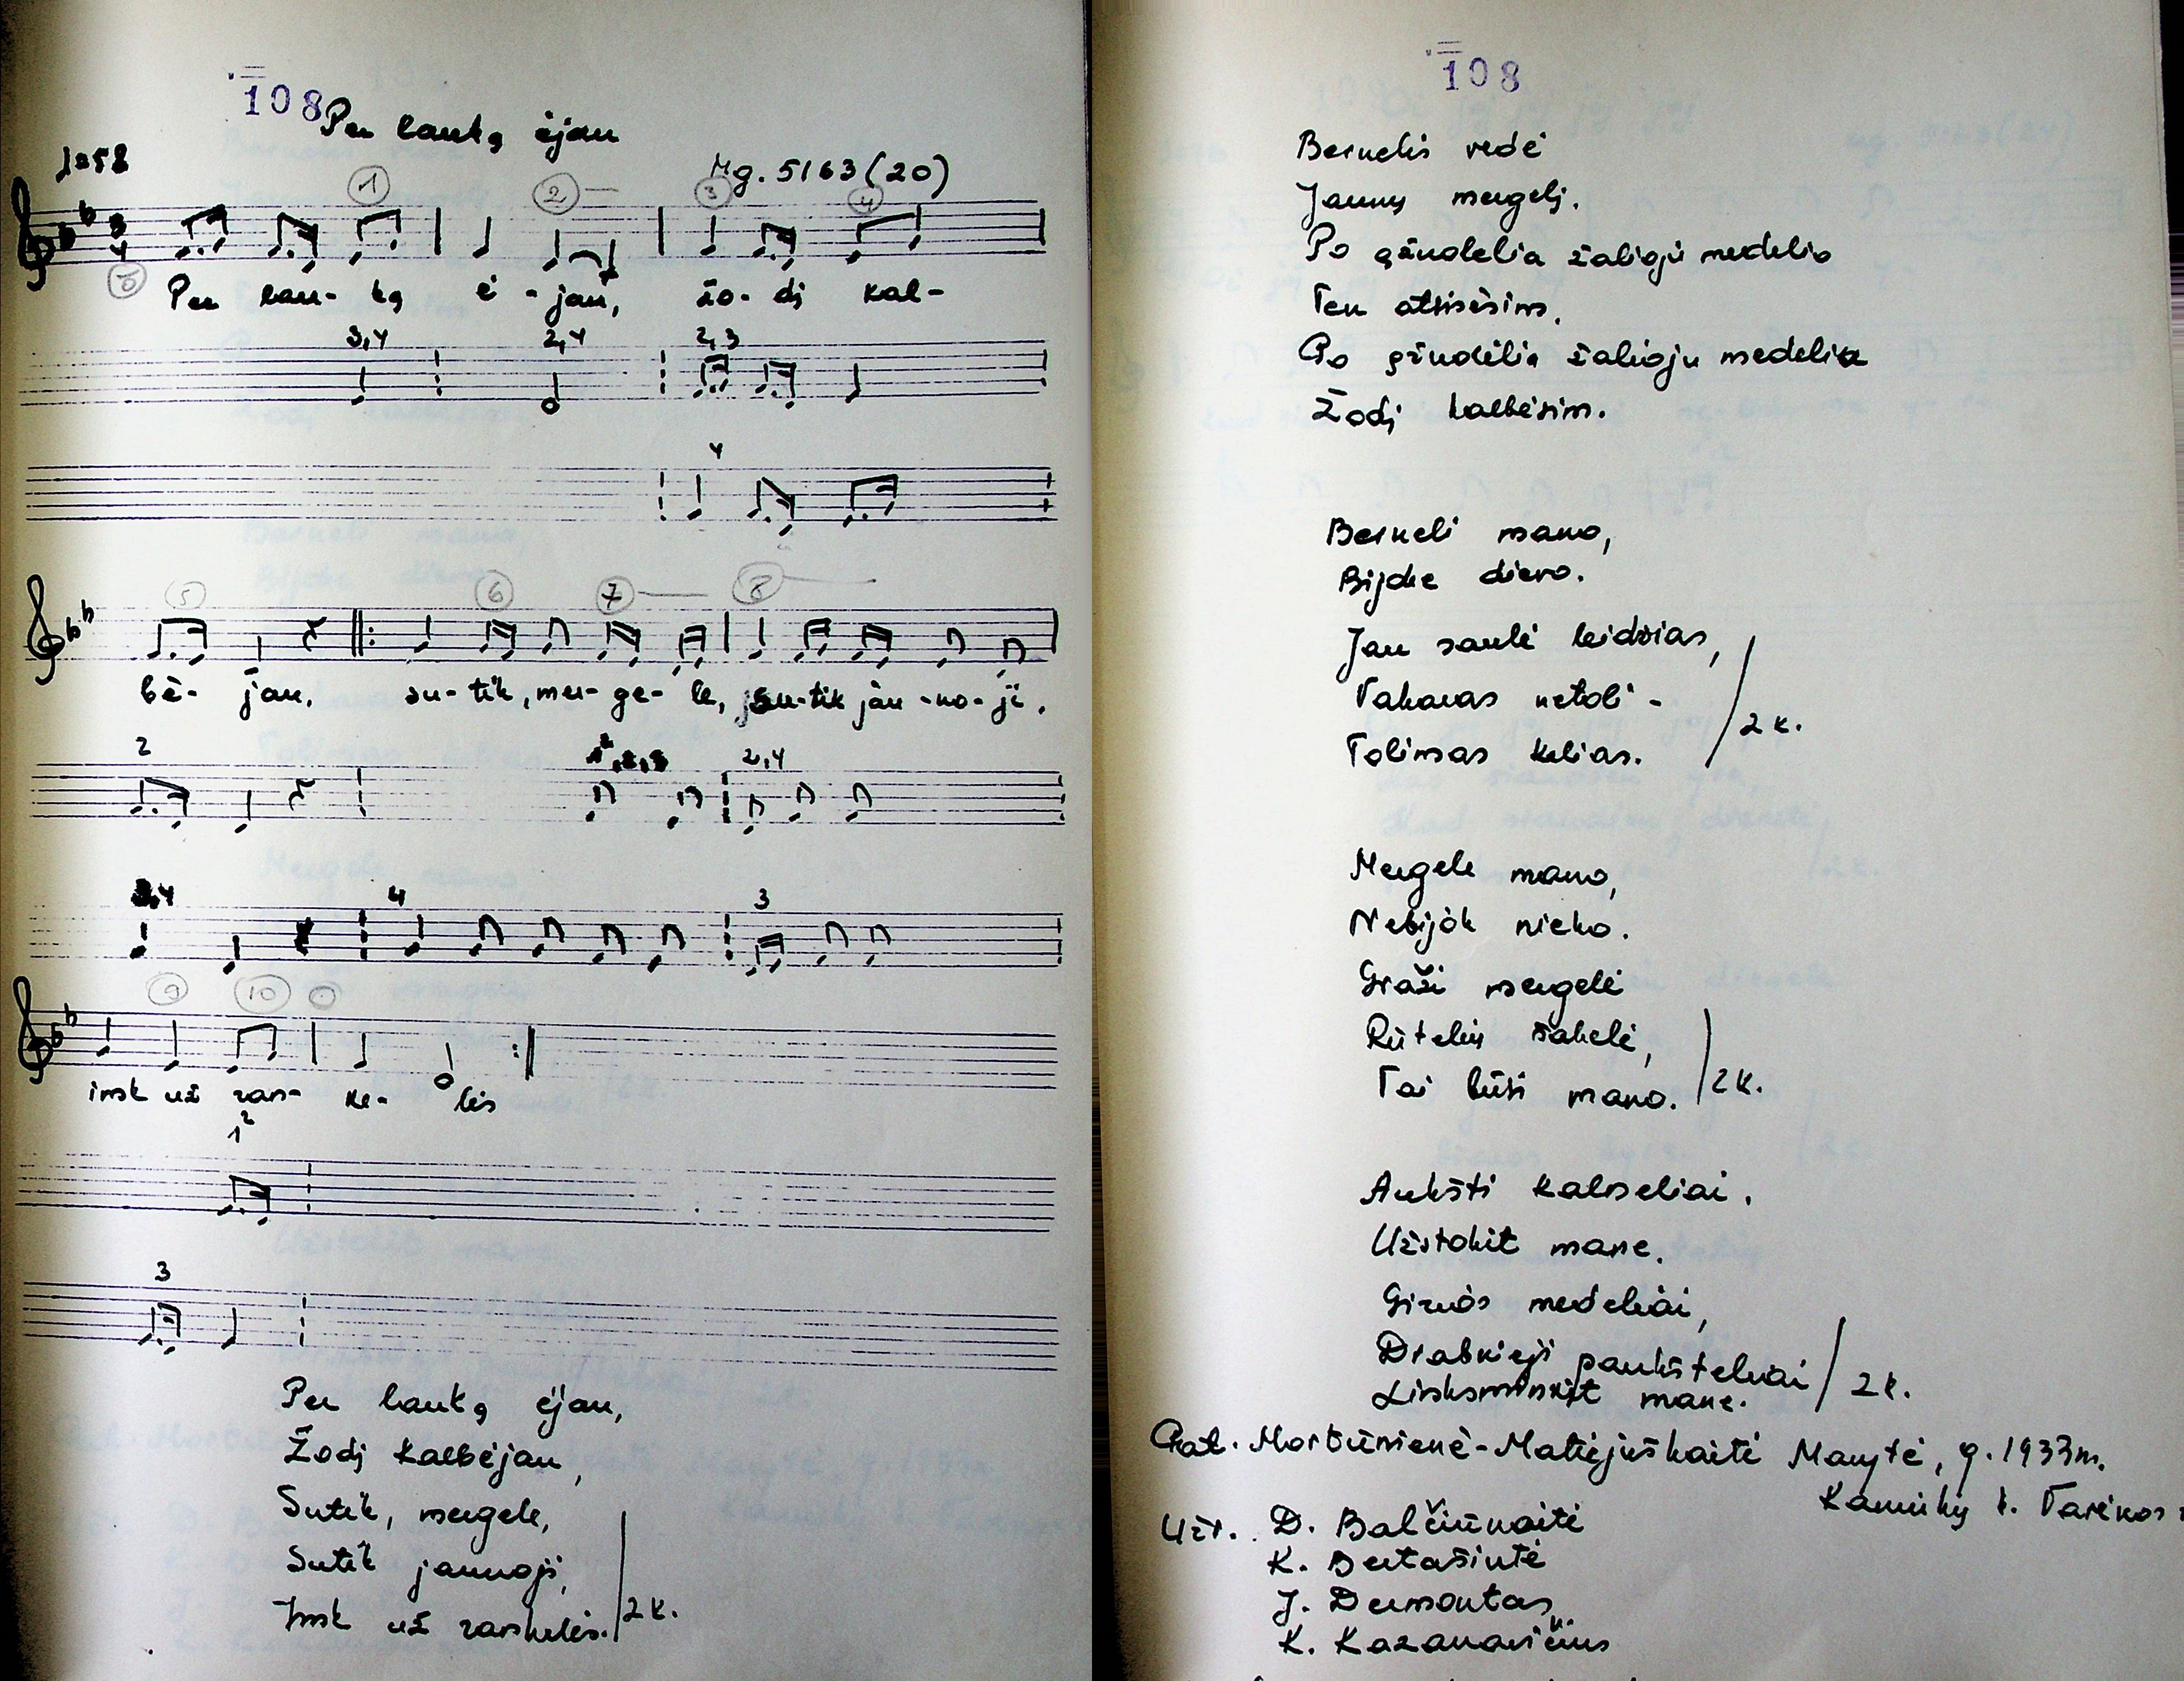 108
Per lauką ėjau
♩=58
Mg. 5163 (20)
1 2 3 4
3
4
Per lau- ką ė - jau, žo- dį kal-
3,4 2,4 2,3
4
5 6 7 8
bė- jau, su- tik, mer- ge- le, su-tik jau -no- ji,
2 2,4
4 3
9 10
imk už ran- ke- lės
1²
3
Per lauką ėjau,
Žodį kalbėjau,
Sutik, mergele,
Sutik jaunoji,
Imk už rankelės. 2 k.
108
Bernelis vedė
Jauną mergelį.
Po ąžuolėlia žalioju medelio
Ten atsisėsim,
Po ąžuolėlia žalioju medelia
Žodį kalbėsim.
Berneli mano,
Bijoke dievo.
Jau saulė leidžias,
Vakaras netoli -
Tolimas kelias. 2 k.
Mergele mano,
Nebijok nieko.
Graži mergelė
Rūtelių šakelė,
Tai būsi mano. 2 k.
Aukšti kalneliai,
Užstokit mane.
Girios medeliai,
Drabnieji paukšteliai
Linksminkit mane. 2 k.
Pat. Morkūnienė-Matiejuškaitė Marytė, g. 1933m.
Kaniūkų k. Varėnos
Užr. D. Balčiūnaitė
K. Bertašiutė
J. Dermontas
K. Kazanavičius